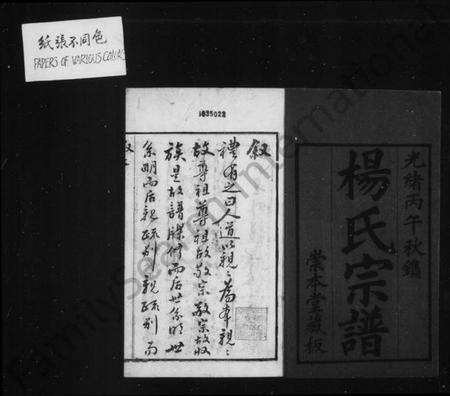 紙張不同色
PAPERS OF VARIOUS COLORS
1035022
光緒丙午秋鐫
楊氏宗譜
崇本堂藏板
叙
禮有之曰人道以親親為本親親
故尊祖尊祖故敬宗敬宗故收
族是故譜牒修而后世系明世
系明而后親疏別親疏別而